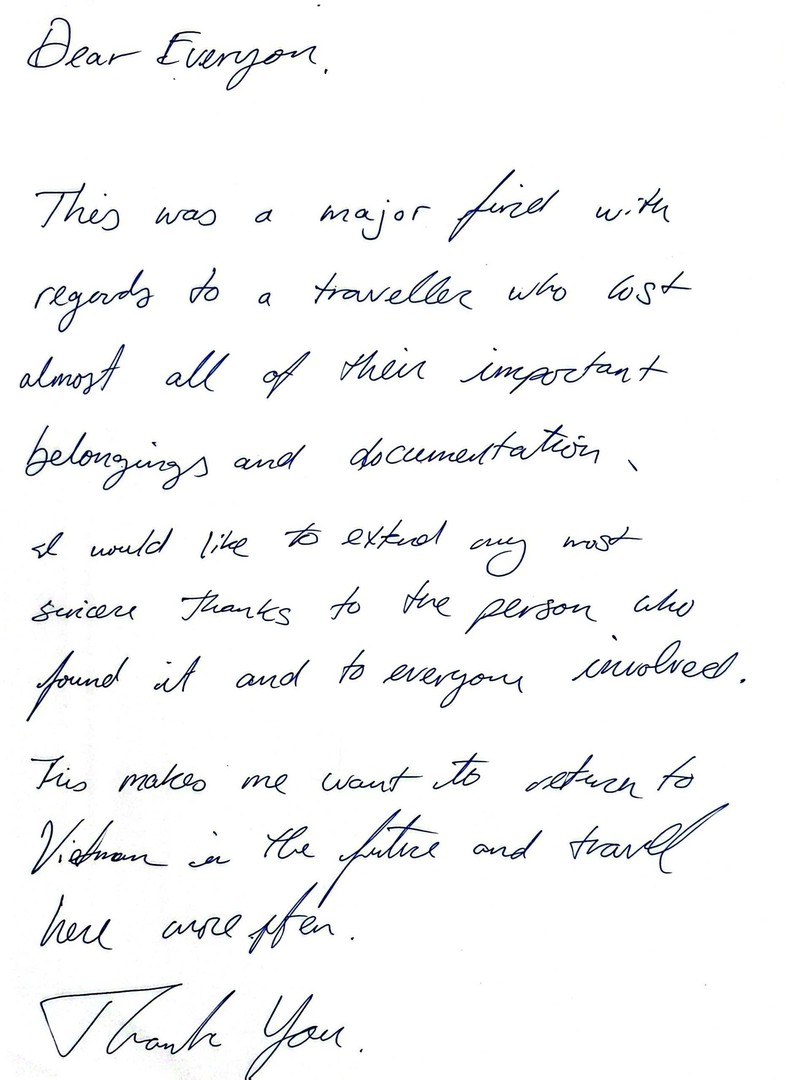 Dear Everyon.
This was a major find with
regards to a traveller who lost
almost all of their important
belongings and documentation.
I would like to extend my most
sincere thanks to the person who
found it and to everyone involved.
This makes me want to return to
Vietnam in the future and travel
here more often.
Thank You.